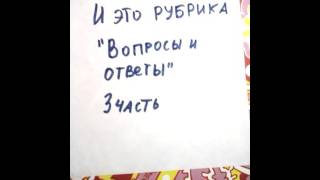 И ЭТО РУБРИКА
"Вопросы и
ответы"
3 часть